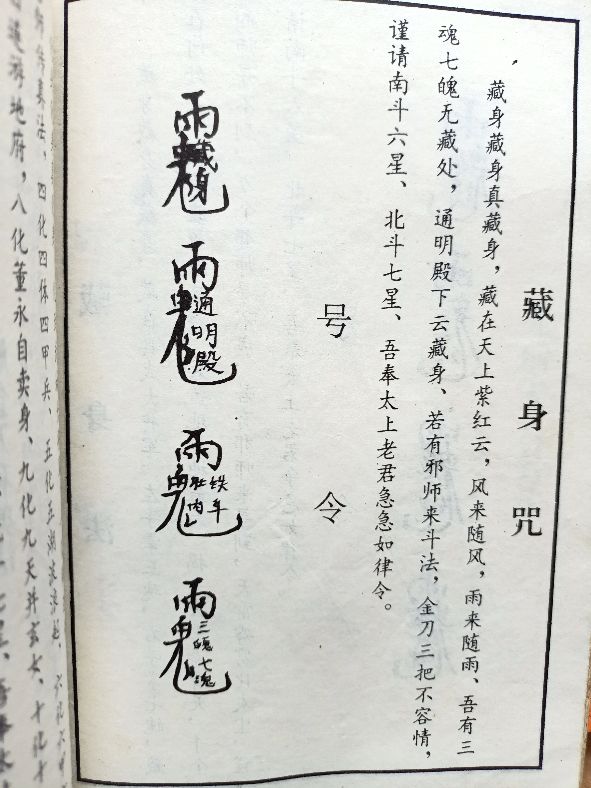 藏身咒
藏身藏身真藏身，藏在天上紫红云，风来随风，雨来随雨、吾有三
魂七魄无藏处，通明殿下云藏身、若有邪师来斗法，金刀三把不容情，
谨请南斗六星、北斗七星、吾奉太上老君急急如律令。
号令
雨藏身
雨通明殿
雨铁车肚内
雨三魄七魂
四化四休四甲兵、五化五湖
地府，八化董永自卖身、九化九天